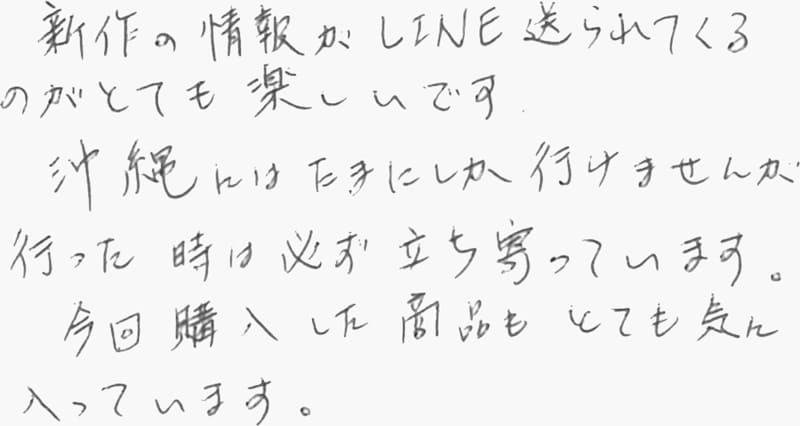 新作の情報がLINE送られてくる
のがとても楽しいです.
沖縄にはたまにしか行けませんが
行った時は必ず立ち寄っています。
今回購入した商品もとても気に
入っています。